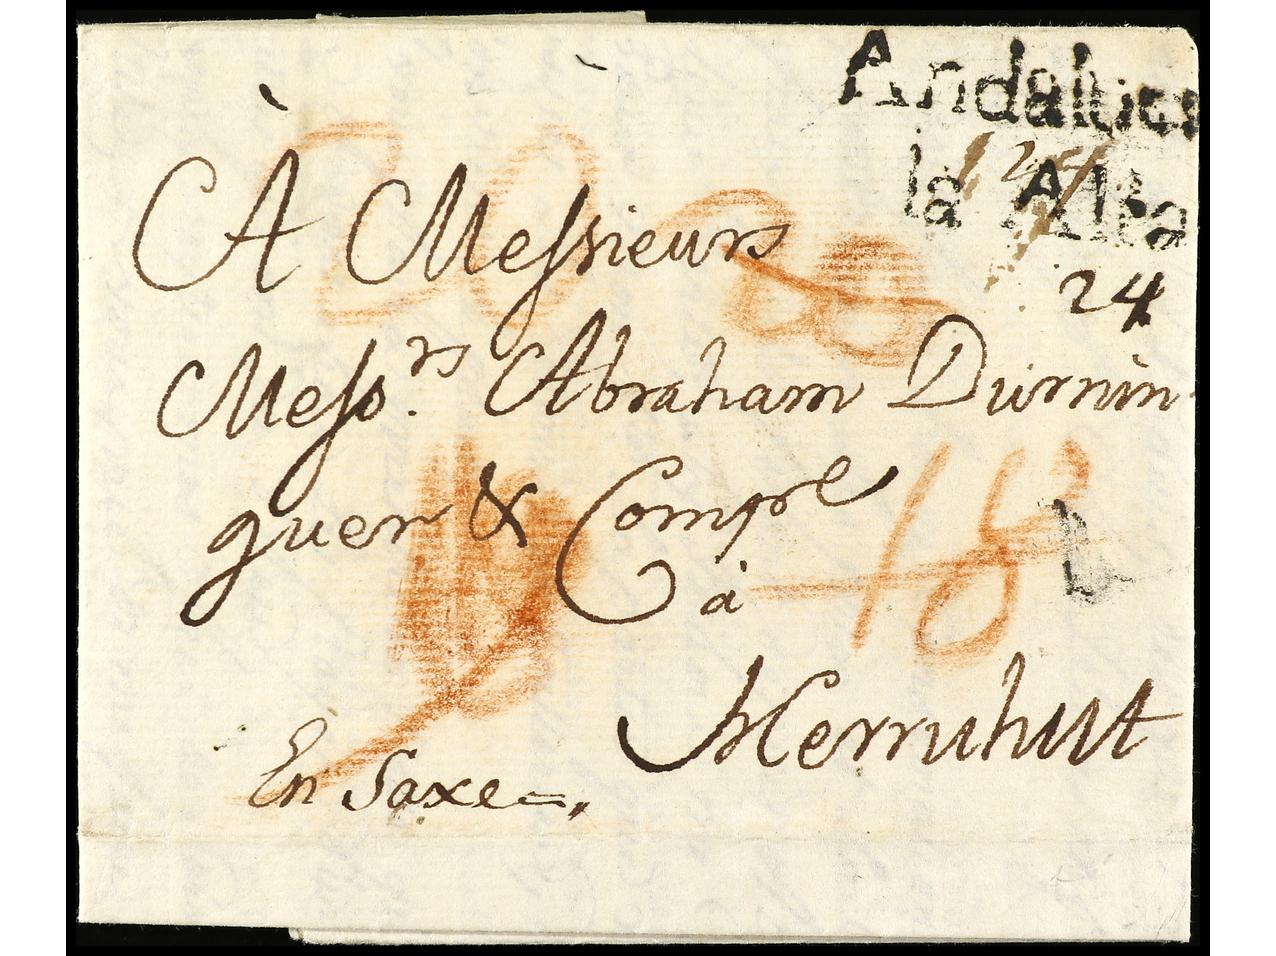 Andaluci
la Alta
24
À Messieurs
Messrs. Abraham Durnin-
guer & Compe
à
18
Herruhutt
En Saxe